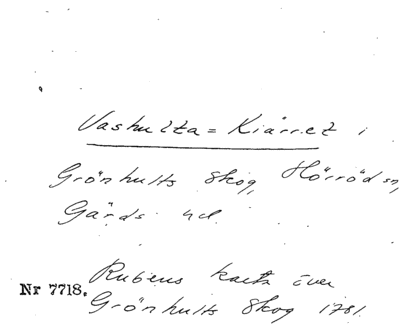 Vashulta = Kiärret i
Grönhults Skog, Hörröd sn,
Gärds hd.
Rubens karta över
Nr 7718. Grönhults Skog 1781.